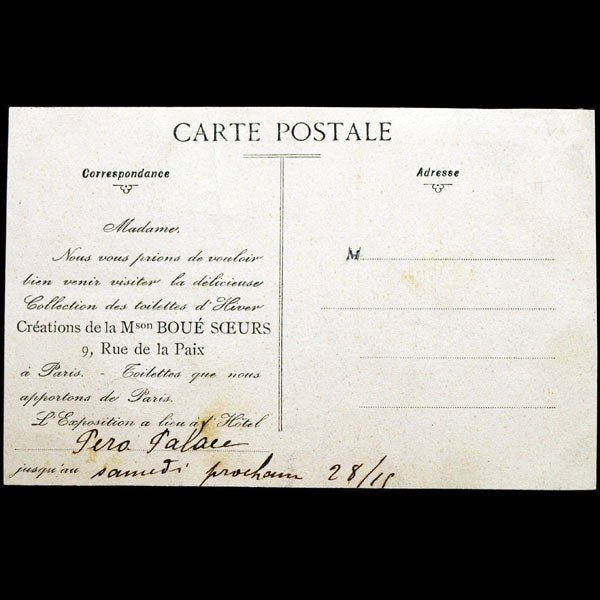 CARTE POSTALE
Correspondance
Adresse
Madame,
Nous vous prions de vouloir
bien venir visiter la délicieuse
Collection des toilettes d'Hiver
Créations de la Mson BOUÉ SŒURS
9, Rue de la Paix
à Paris. - Toilettes que nous
apportons de Paris.
L'Exposition a lieu à l'Hôtel
Pera Palace
jusqu'au samedi prochain 28/
M